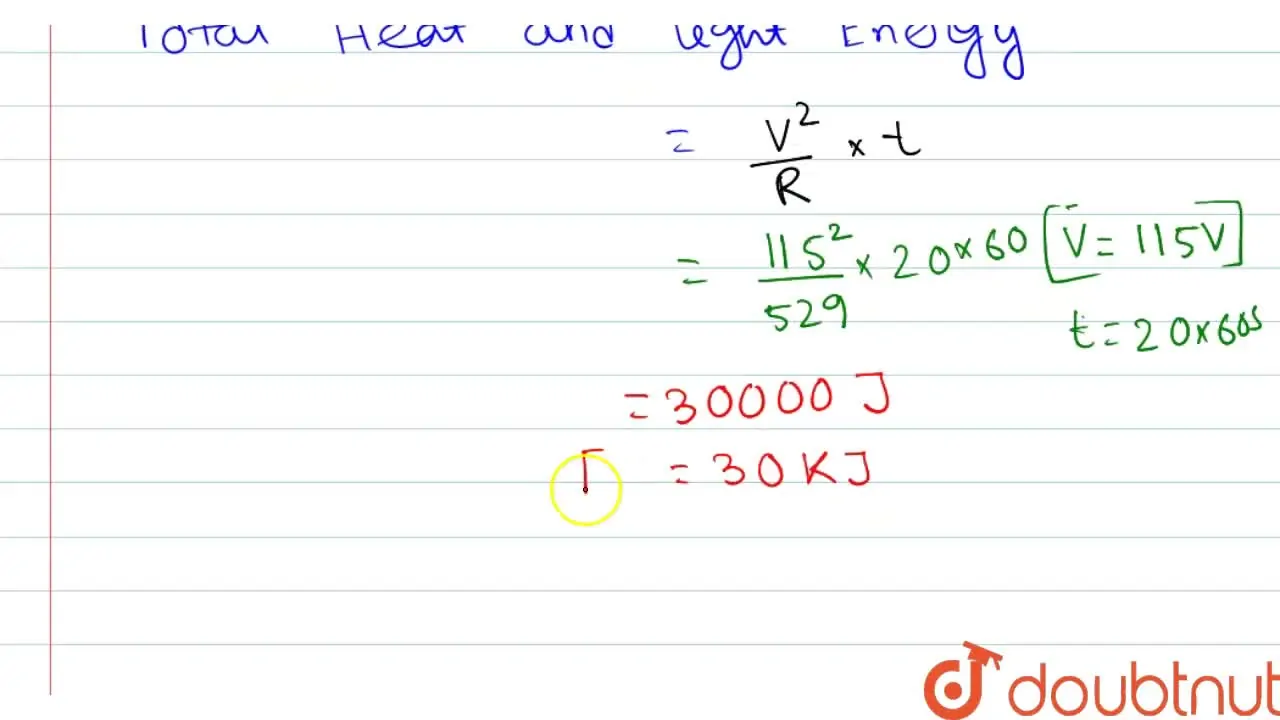 Total Heat and Light Energy
= V²/R × t
= 115²/529 × 20×60 [V = 115V]
t = 20×60s
= 30000 J
= 30 KJ
doubtnut